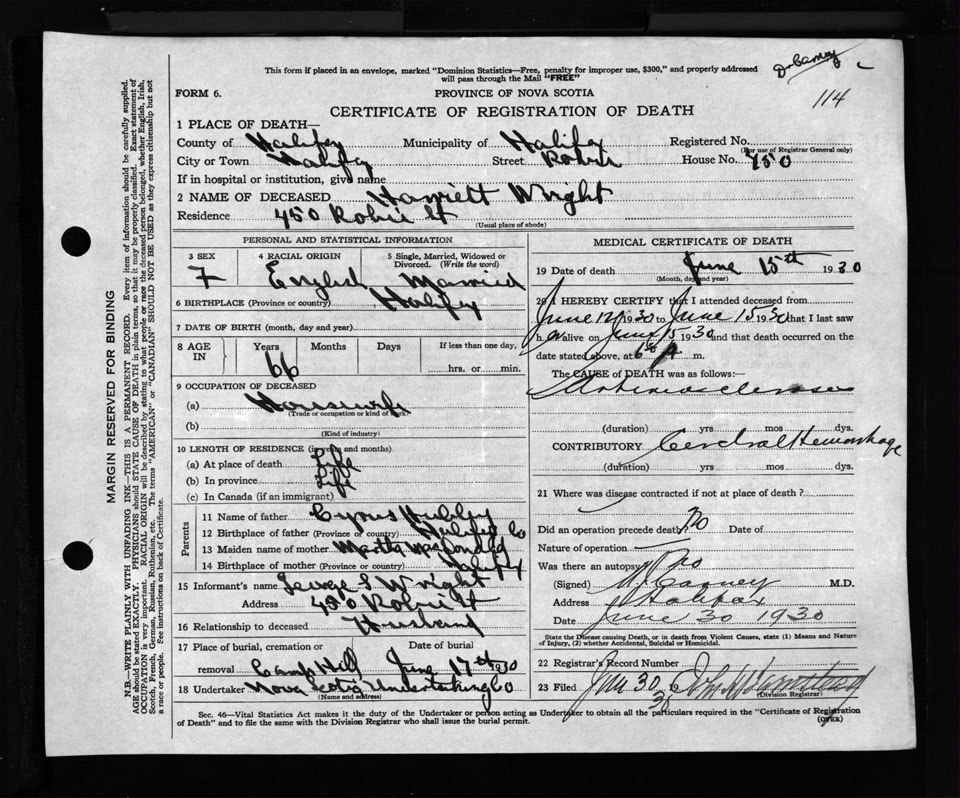 Dr Carney
114
This form if placed in an envelope, marked "Dominion Statistics—Free, penalty for improper use, $300," and properly addressed
will pass through the Mail "FREE"
FORM 6. PROVINCE OF NOVA SCOTIA
CERTIFICATE OF REGISTRATION OF DEATH
1 PLACE OF DEATH—
County of Halifax Municipality of Halifax Registered No.
(For use of Registrar General only)
City or Town Halifax Street Robie House No. 450
If in hospital or institution, give name
2 NAME OF DECEASED Harriett Wright
Residence 450 Robie St
(Usual place of abode)
PERSONAL AND STATISTICAL INFORMATION
3 SEX 4 RACIAL ORIGIN 5 Single, Married, Widowed or
Divorced. (Write the word)
F English Married
6 BIRTHPLACE (Province or country) Halifax
7 DATE OF BIRTH (month, day and year)
8 AGE IN Years Months Days If less than one day,
66 hrs. or min.
9 OCCUPATION OF DECEASED
(a) Housewife
(Trade or occupation or kind of work)
(b)
(Kind of industry)
10 LENGTH OF RESIDENCE (in years and months)
(a) At place of death Life
(b) In province Life
(c) In Canada (if an immigrant)
Parents
11 Name of father Cyrus Hubley
12 Birthplace of father (Province or country) Halifax Co
13 Maiden name of mother Martha MacDonald
14 Birthplace of mother (Province or country) Halifax
15 Informant's name George S Wright
Address 450 Robie St
16 Relationship to deceased Husband
17 Place of burial, cremation or Date of burial
removal Camp Hill June 17th 1930
18 Undertaker Nova Scotia Undertaking Co
(Name and address)
MEDICAL CERTIFICATE OF DEATH
19 Date of death June 15th 1930
(Month, day and year)
20 I HEREBY CERTIFY that I attended deceased from
June 12 1930 to June 15 1930 that I last saw
h er alive on June 15 1930 and that death occurred on the
date stated above, at 6 P m.
The CAUSE of DEATH was as follows:—
Arteriosclerosis
(duration) yrs mos dys.
CONTRIBUTORY Cerebral Hemorrhage
(duration) yrs. mos. dys.
21 Where was disease contracted if not at place of death?
Did an operation precede death? No Date of
Nature of operation
Was there an autopsy? No
(Signed) Carney M.D.
Address Halifax
Date June 30 1930
State the Disease causing Death, or in death from Violent Causes, state (1) Means and Nature
of Injury, (2) whether Accidental, Suicidal or Homicidal.
22 Registrar's Record Number
23 Filed 30 19 30
(Division Registrar)
Sec. 46—Vital Statistics Act makes it the duty of the Undertaker or person acting as Undertaker to obtain all the particulars required in the "Certificate of Registration
of Death" and to file the same with the Division Registrar who shall issue the burial permit. (OVER)
MARGIN RESERVED FOR BINDING
N.B.—WRITE PLAINLY WITH UNFADING INK—THIS IS A PERMANENT RECORD. Every item of information should be carefully supplied.
AGE should be stated EXACTLY. PHYSICIANS should STATE CAUSE OF DEATH in plain terms, so that it may be properly classified. Exact statement of
OCCUPATION is very important. RACIAL ORIGIN will be described by stating to what people or race the deceased person belonged, whether English, Irish,
Scotch, French, German, Russian, Ruthenian, etc. The terms "AMERICAN" or "CANADIAN" SHOULD NOT BE USED as they express citizenship but not
a race or people. See instructions on back of Certificate.